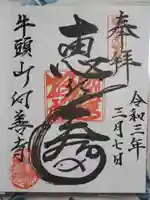 奉拝
令和三年
三月七日
恵比寿
牛頭山